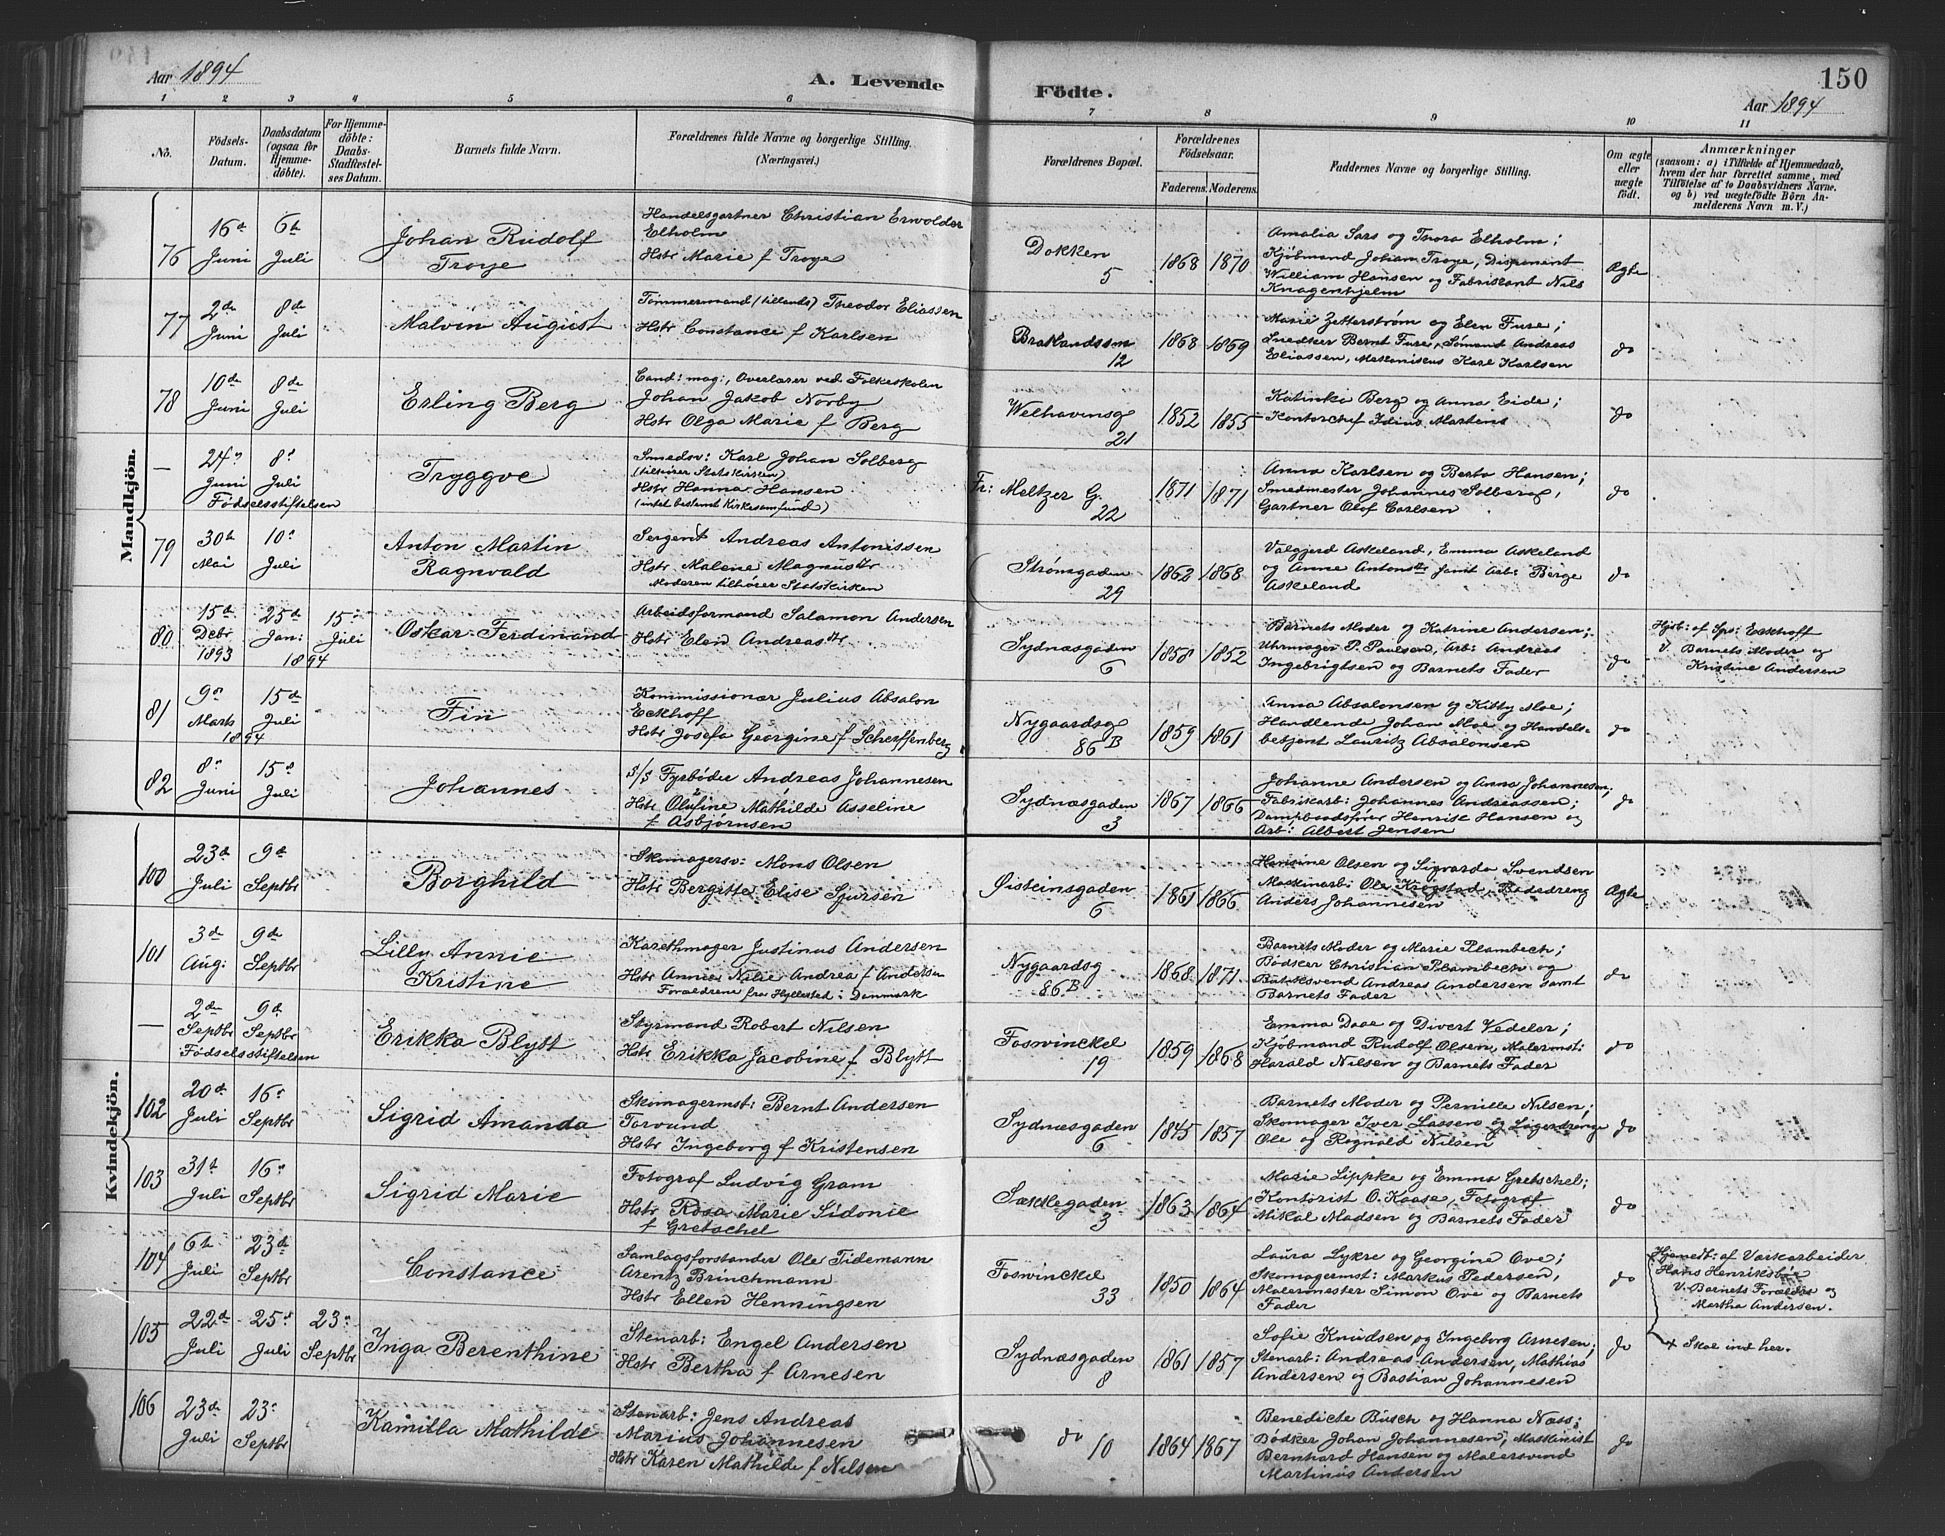 Aar 1894
A. Levende
Födte.
150
Aar 1894
1 2 3 4 5 6 7 8 9 10 11
No.
Födsels-
Datum.
Daabsdatum
(ogsaa for
Hjemme-
döbte).
For Hjemme-
döbte:
Daabs-
Stadfæstel-
ses Datum.
Barnets fulde Navn.
Forældrenes fulde Navne og borgerlige Stilling.
(Næringsvei.)
Forældrenes Bopæl.
Forældrenes
Födselsaar.
Faderens. Moderens.
Faddernes Navne og borgerlige Stilling.
Om ægte
eller
uægte
födt.
Anmærkninger
(saasom: a) i Tilfælde af Hjemmedaab,
hvem der har forrettet samme, med
Tilföielse af to Daabsvidners Navne,
og b) ved uægtefödte Börn An-
melderens Navn m. V.)
Mandkjön.
76
16de Juni
6te Juli
Johan Rudolf
Troye
Handelsgartner Christian Erwolder
Elholm
Hstr Marie f Troye
Dokken
5
1868 1870
Amalia Sars og Thora Elholm;
Kjøbmand Johan Troye, Disponent
William Hansen og Fabrikant Nils
Knagenhjelm
Ægte
77
2de Juni
8de Juli
Malvin August
Tømmermand (tillands) Theodor Eliassen
Hstr Constance f Karlsen
12
1868 1869
Marie Zetterstrøm og Elen Fure;
Snedker Bernt Fure, Sømand Andreas
Eliassen, Mekanikus Karl Karlsen
do
78
10de Juni
8de Juli
Erling Berg
Cand: mag:, Overlærer ved Folkeskolen
Johan Jakob Norby
Hstr Olga Marie f Berg
Welhavensg
21
1852 1855
Katinka Berg og Anna Eide;
Kontorchef Idius Martens
do
—
24" Juni
8" Juli
Födselsstiftelsen
Tryggve
Smedsv: Karl Johan Solberg
(tilhører Statskirken)
Hstr Hanna Hansen
(intet bestemt Kirkesamfund)
Fr: Meltzer G.
22
1871 1871
Anna Karlsen og Berta Hansen;
Smedmester Johannes Solberg,
Gartner Olof Carlsen
do
79
30te Mai
10" Juli
Anton Martin
Ragnvald
Sergent Andreas Antonissen
Hstr Malene Magnusdtr
Moderen tilhører Statskirken
Strømgaden
29
1862 1868
Valgjerd Askeland, Emma Askeland
og Anne Antonsdtr samt Arb: Berge
Askeland
do
80
15de Debr 1893
25de Jan: 1894
15" Juli
Oskar Ferdinand
Arbeidsformand Salamon Andersen
Hstr Elen Andreasdtr
Sydnæsgaden
6
1858 1852
Barnets Moder og Katrine Andersen;
Uhrmager P. Paulsen, Arb: Andreas
Ingebrigtsen og Barnets Fader
do
Hjdb: af Sps: Eckhoff
V. Barnets Moder og
Kristine Andersen
81
9" Marts 1894
15de Juli
Fin
Kommissionær Julius Absalon
Eckhoff
Hstr Josefa Georgine f Scherffenberg
Nygaardsg
86B
1859 1861
Anna Absalonsen og Kitty Moe;
Handlende Johan Moe og Handels-
betjent Lauritz Absalonsen
do
82
8" Juni
15" Juli
Johannes
S/S Fyrbøder Andreas Johannesen
Hstr Olufine Mathilde Asseline
f Asbjørnsen
Sydnæsgaden
3
1867 1866
Johanne Andersen og Anna Johannesen;
Fabrikarb: Johannes Andreassen;
Dampbaadsfører Henrik Hansen og
Arb: Albert Jensen
do
Kvindekjön.
100
23de Juli
9de Septbr
Borghild
Skomagersv: Mons Olsen
Hstr Bergitte Elise Sjursen
Øisteinsgaden
6
1861 1866
Hansine Olsen og Sigvarda Svendsen
Maskinarb: Ole Krogstad, Bødedreng
Anders Johannesen
Ægte
101
3de Aug:
9de Septbr
Lilly Annie
Kristine
Karethmager Justinus Andersen
Hstr Annie Nilie Andrea f Andersen
Forældrene fra Hyllested: Danmark
Nygaardsg
86B
1868 1871
Barnets Moder og Marie Plambech;
Bødker Christian Plambech og
Andreas Andersen samt
Barnets Fader
do
—
2de Septbr
9de Septbr
Födselsstiftelsen
Erikka Blytt
Styrmand Robert Nilsen
Hstr Erikka Jacobine f Blytt
Foswinckel
19
1859 1868
Emma Daae og Divert Vedeler;
Kjøbmand Rudolf Olsen, Malermst:
Harald Nilsen og Barnets Fader
do
102
20de Juli
16" Septbr
Sigrid Amanda
Skomagermst: Bernt Andersen
Torvund
Hstr Ingeborg f Kristensen
Sydnæsgaden
6
1845 1857
Barnets Moder og Pernille Nilsen;
Skomager Iver Lassen og Lagerdrenge
Ole og Rognald Nilsen
do
103
31te Juli
16" Septbr
Sigrid Marie
Fotograf Ludvig Gram
Hstr Rosa Marie Sidonie
f Gretschel
Sækkegaden
3
1863 1864
Marie Lippke og Emma Gretschel;
Kontorist O. Kaase, Fotograf
Mikal Madsen og Barnets Fader
do
104
6te Juli
23de Septbr
Constance
Samlagsforstander Ole Tidemann
Arentz Brinchmann
Hstr Ellen Henningsen
Foswinckel
33
1850 1864
Laura Lykre og Georgine Ove;
Skomagermst: Markus Pedersen,
Malermester Simon Ove og Barnets
Fader
do
Hjemdb: af Værkarbeider
Hans Henriksbøe
V. Barnets Forældre og
Martha Andersen.
105
22de Juli
25" Juli
23" Septbr
Inga Berenthine
Stenarb: Engel Andersen
Hstr Bertha f Arnesen
Sydnæsgaden
8
1861 1857
Sofie Knudsen og Ingeborg Arnesen;
Stenarb: Andreas Andersen, Mathias
Andersen og Bastian Johannesen
do
+ Skal ind her.
106
23de Juli
23" Septbr
Kamilla Mathilde
Stenarb: Jens Andreas
Marius Johannesen
Hstr Karen Mathilde f Nilsen
do 10
1864 1867
Benedicte Busch og Hanna Næss;
Bødker Johan Johannesen, Maskinist
Bernhard Hansen og Malersvend
Martinus Andersen
do